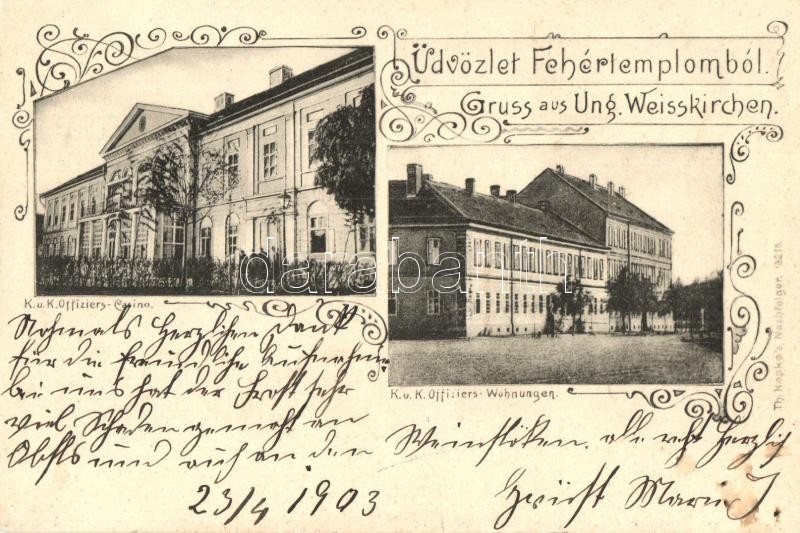 Üdvözlet Fehértemplomból.
Gruss aus Ung. Weisskirchen.
K. u. K. Offiziers-Casino.
K. u. K. Offiziers-Wohnungen.
Th. Hepke's Nachfolger.
darabanth.com
Nochmals Herzlichen Dank
für die freundliche Aufnahme
bei uns hat der Frost sehr
viel Schaden gemacht an
Obst und auch an den Weinstöken. alle recht Herzlich
grüsst Marie
23/4 1903